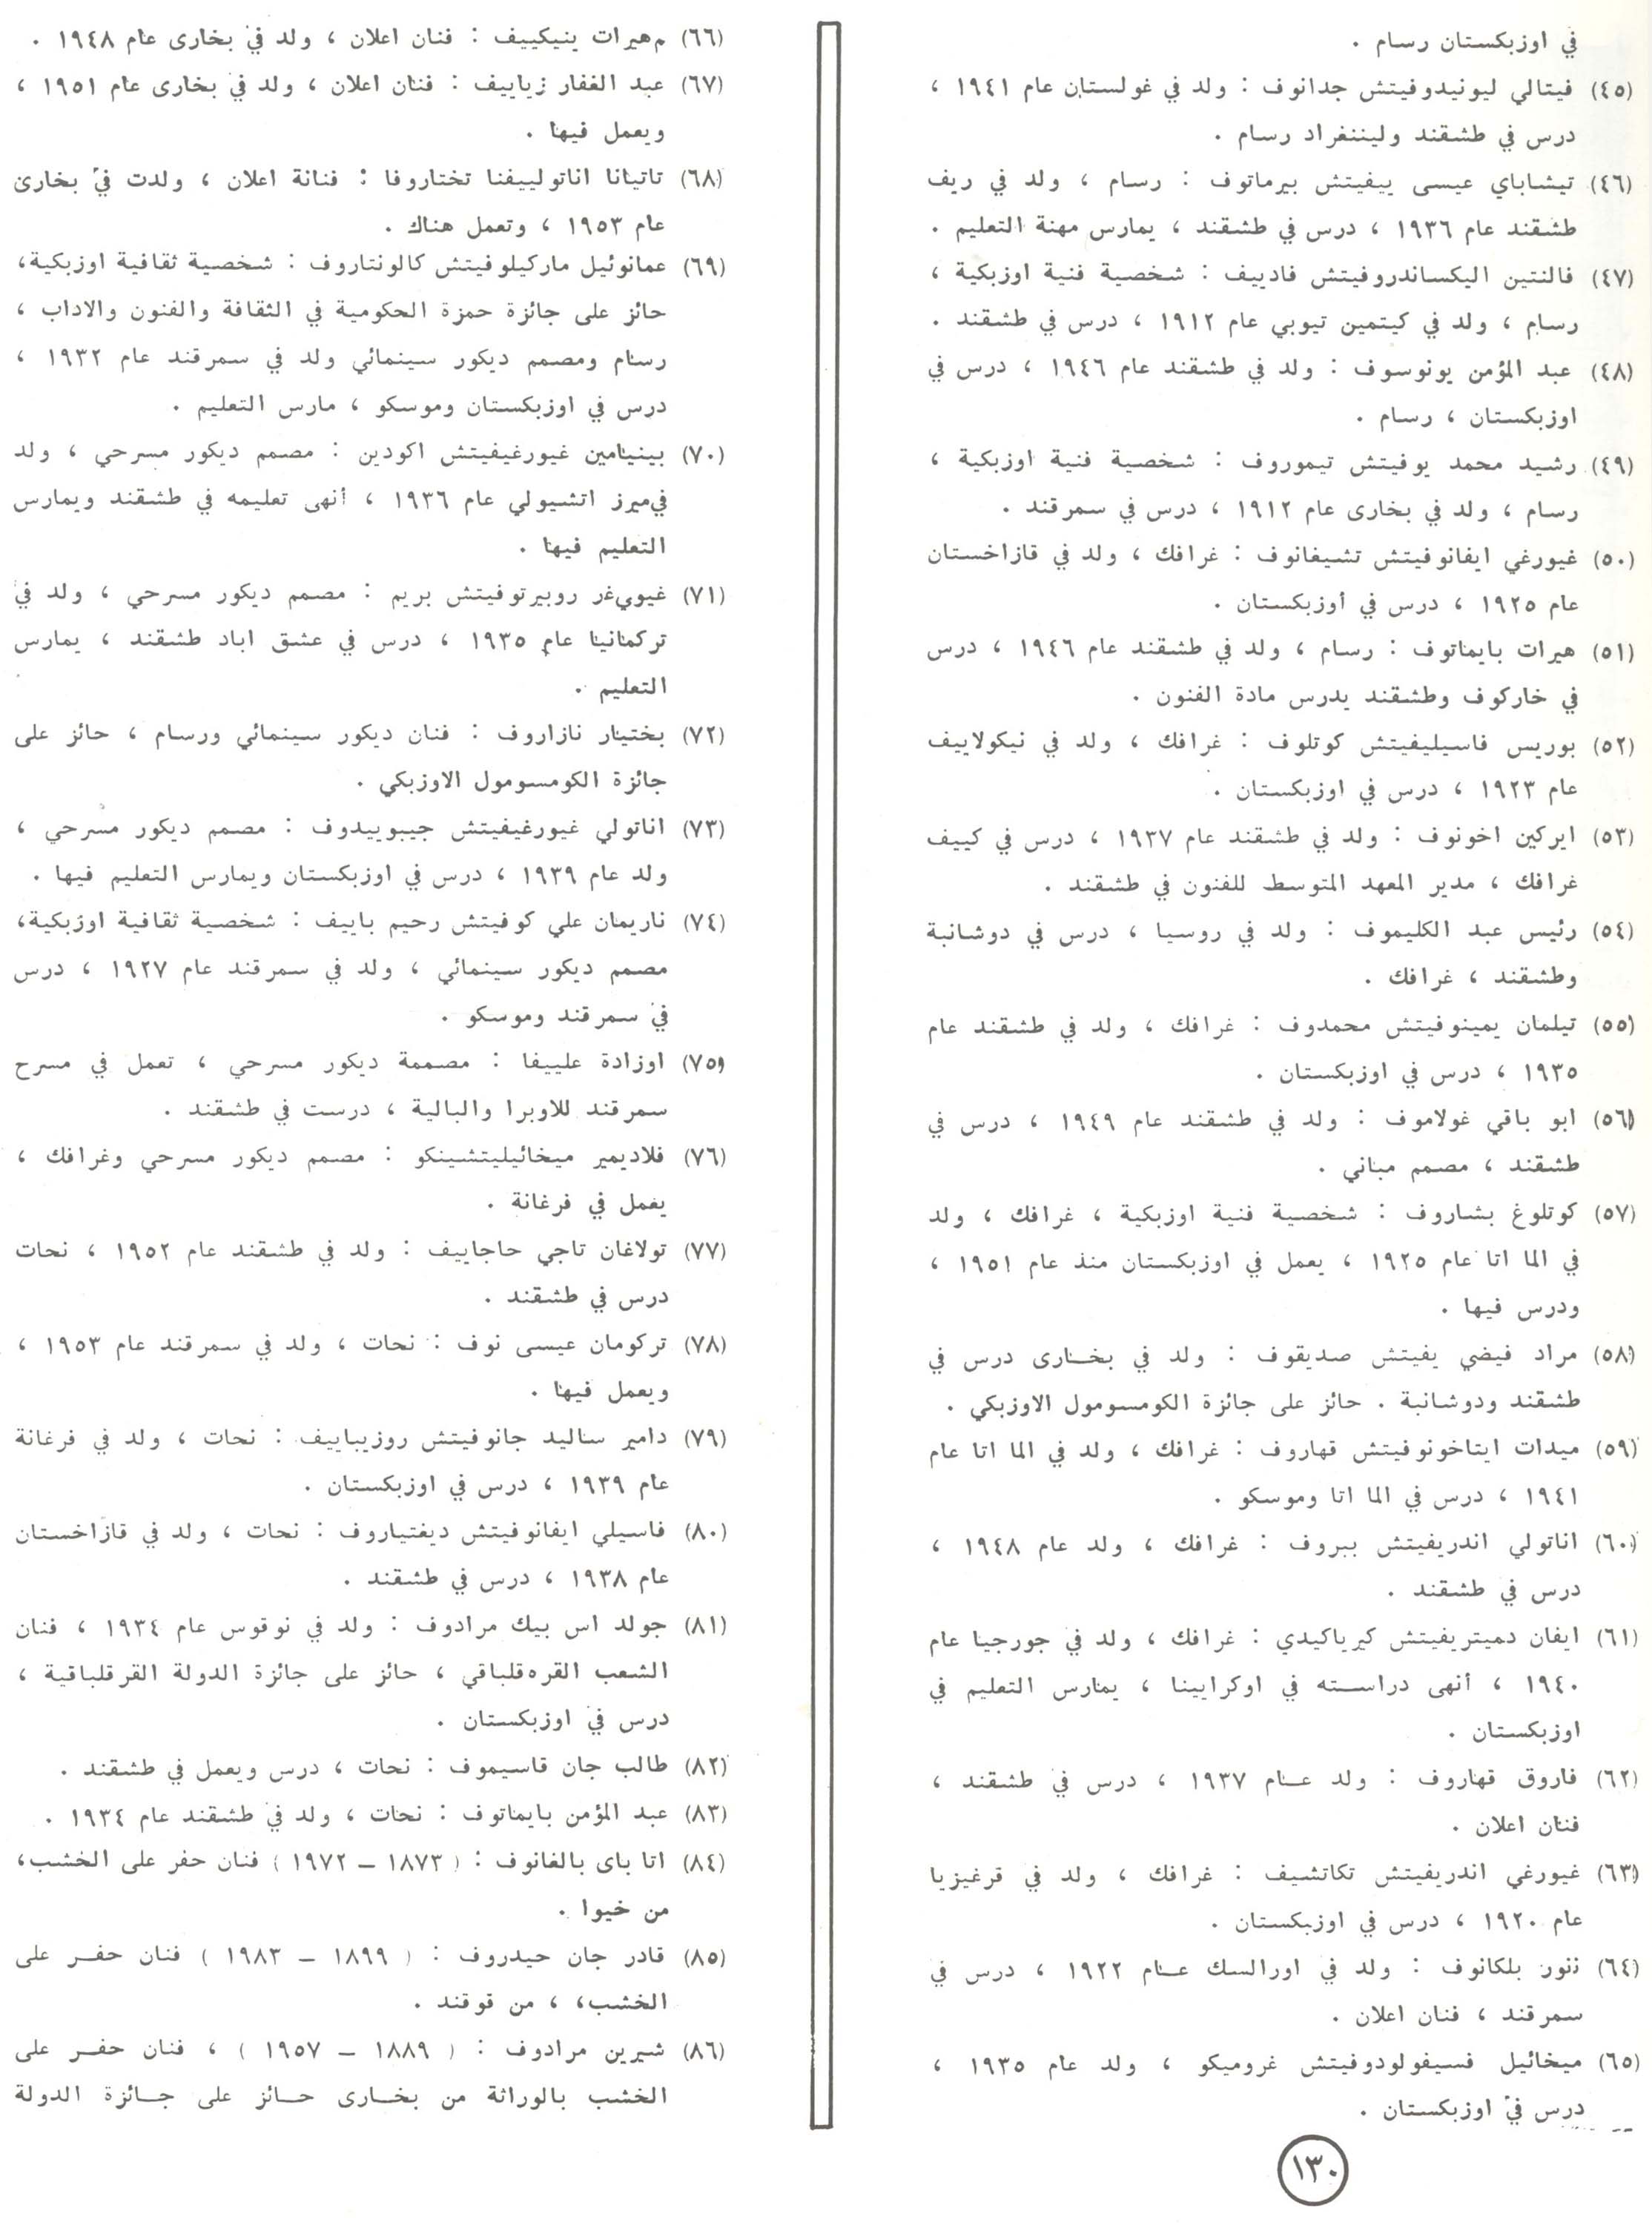 في اوزبكستان رسام .
(٤٥) فيتالي ليونيدوفيتش جدانوف : ولد في غولستان عام ١٩٤١ ،
درس في طشقند وليننغراد رسام .
(٤٦) تيشاباي عيسى ييفيتش بيرماتوف : رسام ، ولد في ريف
طشقند عام ١٩٣٦ ، درس في طشقند ، يمارس مهنة التعليم .
(٤٧) فالنتين اليكساندروفيتش فادييف : شخصية فنية اوزبكية ،
رسام ، ولد في كيتمين تيوبي عام ١٩١٢ ، درس في طشقند .
(٤٨) عبد المؤمن يونوسوف : ولد في طشقند عام ١٩٤٦ ، درس في
اوزبكستان ، رسام .
(٤٩) رشيد محمد يوفيتش تيموروف : شخصية فنية اوزبكية ،
رسام ، ولد في بخارى عام ١٩١٢ ، درس في سمرقند .
(٥٠) غيورغي ايفانوفيتش تشيفانوف : غرافك ، ولد في قازاخستان
عام ١٩٢٥ ، درس في أوزبكستان .
(٥١) هيرات بايماتوف : رسام ، ولد في طشقند عام ١٩٤٦ ، درس
في خاركوف وطشقند يدرس مادة الفنون .
(٥٢) بوريس فاسيليفيتش كوتلوف : غرافك ، ولد في نيكولاييف
عام ١٩٢٣ ، درس في اوزبكستان .
(٥٣) ايركين اخونوف : ولد في طشقند عام ١٩٣٧ ، درس في كييف
غرافك ، مدير المعهد المتوسط للفنون في طشقند .
(٥٤) رئيس عبد الكليموف : ولد في روسيا ، درس في دوشانبة
وطشقند ، غرافك .
(٥٥) تيلمان يمينوفيتش محمدوف : غرافك ، ولد في طشقند عام
١٩٣٥ ، درس في اوزبكستان .
(٥٦) ابو باقي غولاموف : ولد في طشقند عام ١٩٤٩ ، درس في
طشقند ، مصمم مباني .
(٥٧) كوتلوغ بشاروف : شخصية فنية اوزبكية ، غرافك ، ولد
في الما اتا عام ١٩٢٥ ، يعمل في اوزبكستان منذ عام ١٩٥١ ،
ودرس فيها .
(٥٨) مراد فيضي يفيتش صديقوف : ولد في بخارى درس في
طشقند ودوشانبة . حائز على جائزة الكومسومول الاوزبكي .
(٥٩) ميدات ايتاخونوفيتش قهاروف : غرافك ، ولد في الما اتا عام
١٩٤١ ، درس في الما اتا وموسكو .
(٦٠) اناتولي اندريفيتش ببروف : غرافك ، ولد عام ١٩٤٨ ،
درس في طشقند .
(٦١) ايفان دميتريفيتش كيرياكيدي : غرافك ، ولد في جورجيا عام
١٩٤٠ ، أنهى دراسته في اوكرايينا ، يمارس التعليم في
اوزبكستان .
(٦٢) فاروق قهاروف : ولد عام ١٩٣٧ ، درس في طشقند ،
فنان اعلان .
(٦٣) غيورغي اندريفيتش تكاتشيف : غرافك ، ولد في قرغيزيا
عام ١٩٢٠ ، درس في اوزبكستان .
(٦٤) ننور بلكانوف : ولد في اورالسك عام ١٩٢٢ ، درس في
سمرقند ، فنان اعلان .
(٦٥) ميخائيل فسيفولودوفيتش غروميكو ، ولد عام ١٩٣٥ ،
درس في اوزبكستان .
(٦٦) مهيرات ينيكييف : فنان اعلان ، ولد في بخارى عام ١٩٤٨ .
(٦٧) عبد الغفار زياييف : فنان اعلان ، ولد في بخارى عام ١٩٥١ ،
ويعمل فيها .
(٦٨) تاتيانا اناتولييفنا تختاروفا : فنانة اعلان ، ولدت في بخارى
عام ١٩٥٣ ، وتعمل هناك .
(٦٩) عمانوئيل ماركيلوفيتش كالونتاروف : شخصية ثقافية اوزبكية،
حائز على جائزة حمزة الحكومية في الثقافة والفنون والاداب ،
رسام ومصمم ديكور سينمائي ولد في سمرقند عام ١٩٣٢ ،
درس في اوزبكستان وموسكو ، مارس التعليم .
(٧٠) بينيامين غيورغيفيتش اكودين : مصمم ديكور مسرحي ، ولد
في ميرز اتشيولي عام ١٩٣٦ ، أنهى تعليمه في طشقند ويمارس
التعليم فيها .
(٧١) غيويغر روبيرتوفيتش بريم : مصمم ديكور مسرحي ، ولد في
تركمانيا عام ١٩٣٥ ، درس في عشق اباد طشقند ، يمارس
التعليم .
(٧٢) بختيار نازاروف : فنان ديكور سينمائي ورسام ، حائز على
جائزة الكومسومول الاوزبكي .
(٧٣) اناتولي غيورغيفيتش جيبوييدوف : مصمم ديكور مسرحي ،
ولد عام ١٩٣٩ ، درس في اوزبكستان ويمارس التعليم فيها .
(٧٤) ناريمان علي كوفيتش رحيم باييف : شخصية ثقافية اوزبكية،
مصمم ديكور سينمائي ، ولد في سمرقند عام ١٩٢٧ ، درس
في سمرقند وموسكو .
(٧٥) اوزادة علييفا : مصممة ديكور مسرحي ، تعمل في مسرح
سمرقند للاوبرا والبالية ، درست في طشقند .
(٧٦) فلاديمير ميخائيليتشينكو : مصمم ديكور مسرحي وغرافك ،
يعمل في فرغانة .
(٧٧) تولاغان تاجي حاجاييف : ولد في طشقند عام ١٩٥٢ ، نحات
درس في طشقند .
(٧٨) تركومان عيسى نوف : نحات ، ولد في سمرقند عام ١٩٥٣ ،
ويعمل فيها .
(٧٩) دامير ساليد جانوفيتش روزيباييف : نحات ، ولد في فرغانة
عام ١٩٣٩ ، درس في اوزبكستان .
(٨٠) فاسيلي ايفانوفيتش ديغتياروف : نحات ، ولد في قازاخستان
عام ١٩٣٨ ، درس في طشقند .
(٨١) جولد اس بيك مرادوف : ولد في نوقوس عام ١٩٣٤ ، فنان
الشعب القره قلباقي ، حائز على جائزة الدولة القرقلباقية ،
درس في اوزبكستان .
(٨٢) طالب جان قاسيموف : نحات ، درس ويعمل في طشقند .
(٨٣) عبد المؤمن بايماتوف : نحات ، ولد في طشقند عام ١٩٣٤ .
(٨٤) اتا باى بالغانوف : ( ١٨٧٣ – ١٩٧٢ ) فنان حفر على الخشب،
من خيوا .
(٨٥) قادر جان حيدروف : ( ١٨٩٩ – ١٩٨٣ ) فنان حفر على
الخشب، ، من قوقند .
(٨٦) شيرين مرادوف : ( ١٨٨٩ – ١٩٥٧ ) ، فنان حفر على
الخشب بالوراثة من بخارى حائز على جائزة الدولة
١٣٠